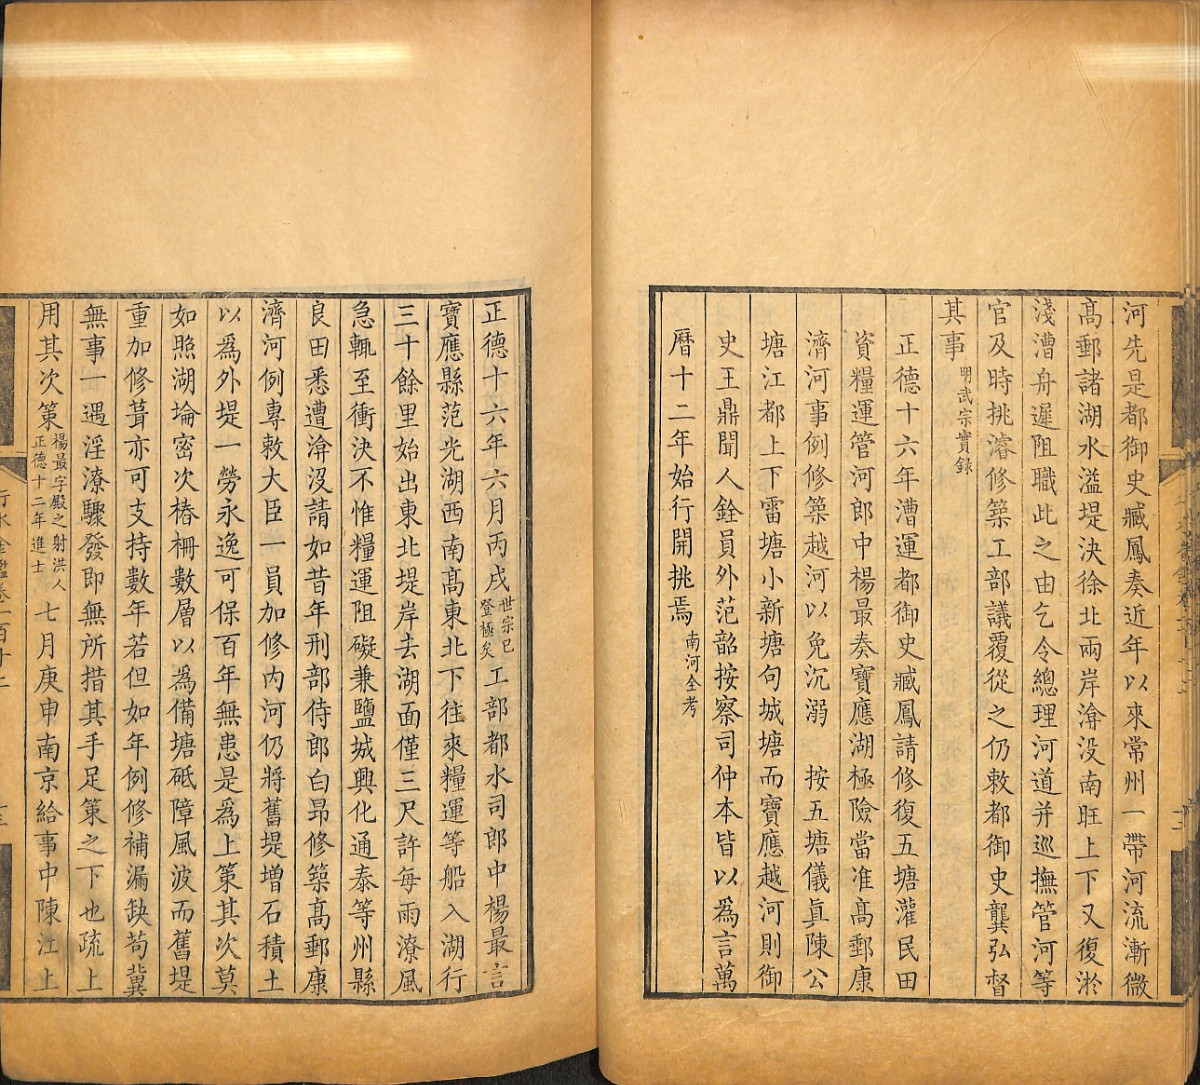 河先是都御史臧鳳奏近年以來常州一帶河流漸微
高郵諸湖水溢堤決徐北兩岸渰没南旺上下又復淤
淺漕舟遲阻職此之由乞令總理河道并巡撫管河等
官及時挑濬修築工部議覆從之仍敕都御史龔弘督
其事明武宗實錄
正德十六年漕運都御史臧鳳請修復五塘灌民田
資糧運管河郎中楊最奏寶應湖極險當准高郵康
濟河事例修築越河以免沉溺　按五塘儀真陳公
塘江都上下雷塘小新塘句城塘而寶應越河則御
史王鼎聞人銓員外范韶按察司仲本皆以爲言萬
曆十二年始行開挑焉南河全考
正德十六年六月丙戌世宗已登極矣工部都水司郎中楊最言
寶應縣范光湖西南高東北下往來糧運等船入湖行
三十餘里始出東北堤岸去湖面僅三尺許每雨潦風
急輒至衝決不惟糧運阻礙兼鹽城興化通泰等州縣
良田悉遭渰沒請如昔年刑部侍郎白昂修築高郵康
濟河例專敕大臣一員加修內河仍將舊堤增石積土
以爲外堤一勞永逸可保百年無患是爲上策其次莫
如照湖埨密次樁柵數層以爲備塘砥障風波而舊堤
重加修葺亦可支持數年若但如年例修補漏缺苟冀
無事一遇淫潦驟發即無所措其手足策之下也疏上
用其次策楊最字殿之射洪人正德十二年進士七月庚申南京給事中陳江上
行水金鑑卷一百十二